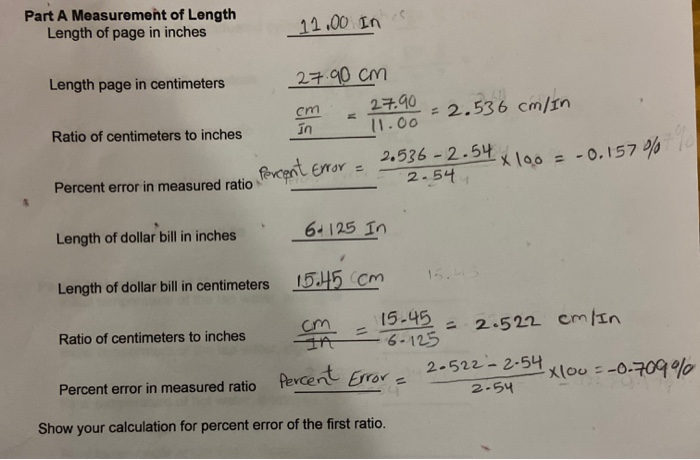 Part A Measurement of Length
Length of page in inches 11.00 In
Length page in centimeters 27.90 cm
Ratio of centimeters to inches cm/In = 27.90/11.00 = 2.536 cm/In
Percent error in measured ratio Percent Error = 2.536 - 2.54/2.54 x 100 = -0.157 %
Length of dollar bill in inches 6.125 In
Length of dollar bill in centimeters 15.45 cm
Ratio of centimeters to inches cm/In = 15.45/6.125 = 2.522 cm/In
Percent error in measured ratio Percent Error = 2.522 - 2.54/2.54 x 100 = -0.709 %
Show your calculation for percent error of the first ratio.